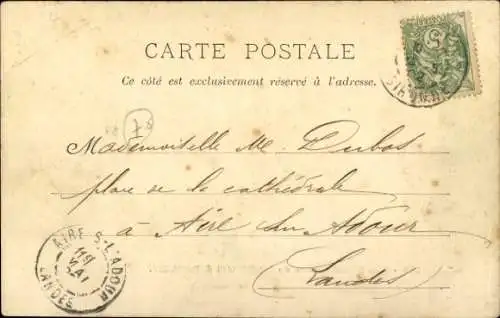 CARTE POSTALE
Ce côté est exclusivement réservé à l'adresse.
78
Mademoiselle M. Dubos
place de la cathédrale
à Aire sur Adour
Landes
AIRE S-L'ADOUR
19
MAI
LANDES